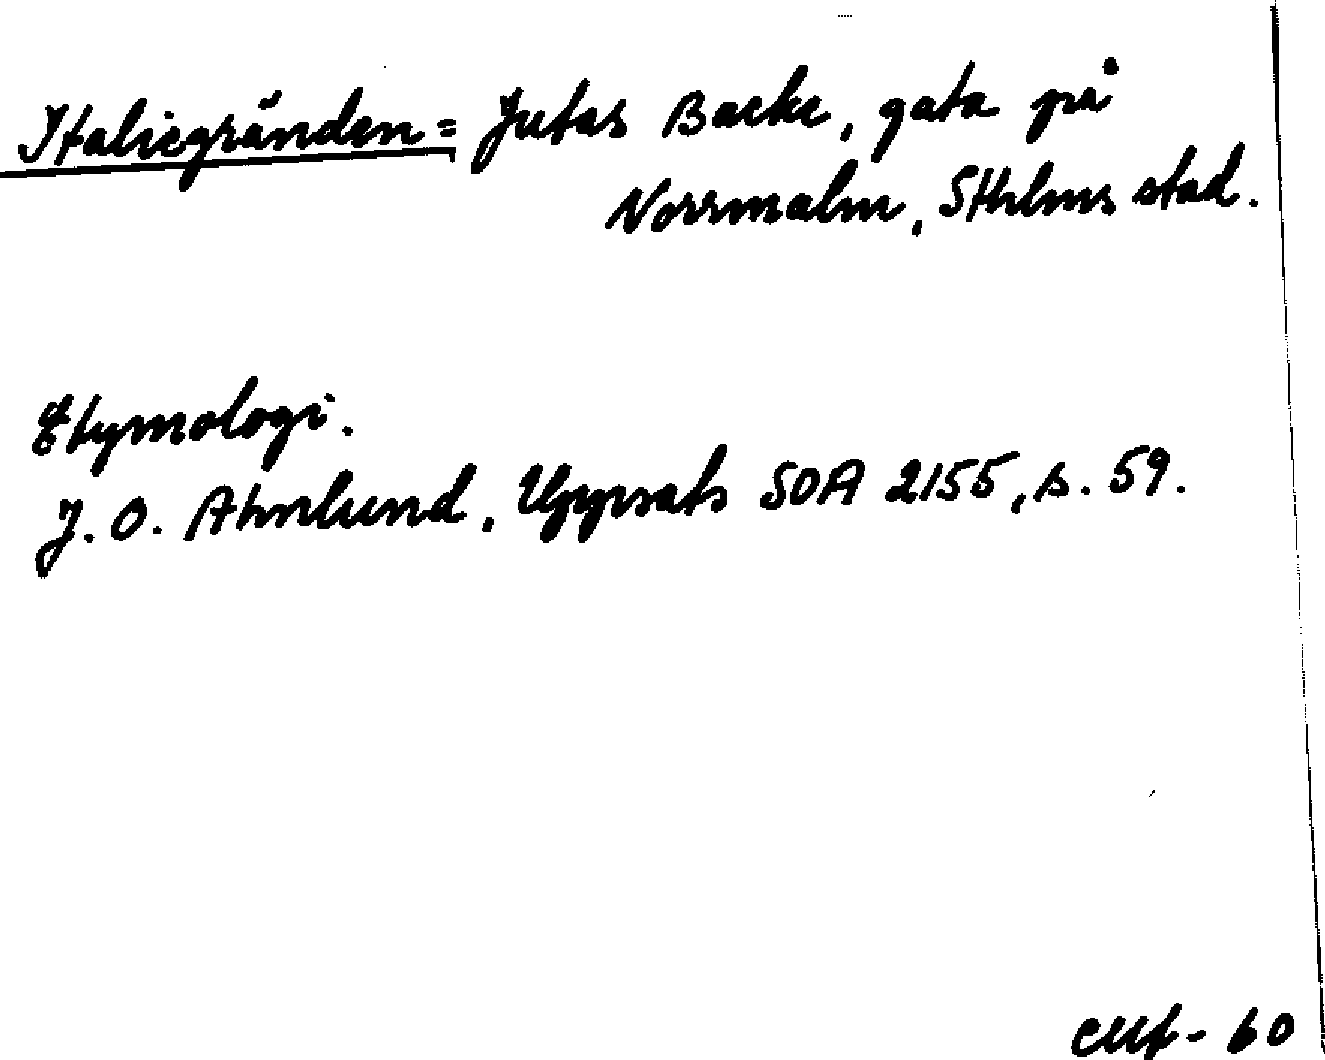 Italiegränden = Jutas Backe, gata på
Norrmalm, Sthlms stad.
Etymologi.
J. O. Almlund, Uppsats SOA 2155, s. 59.
- 60